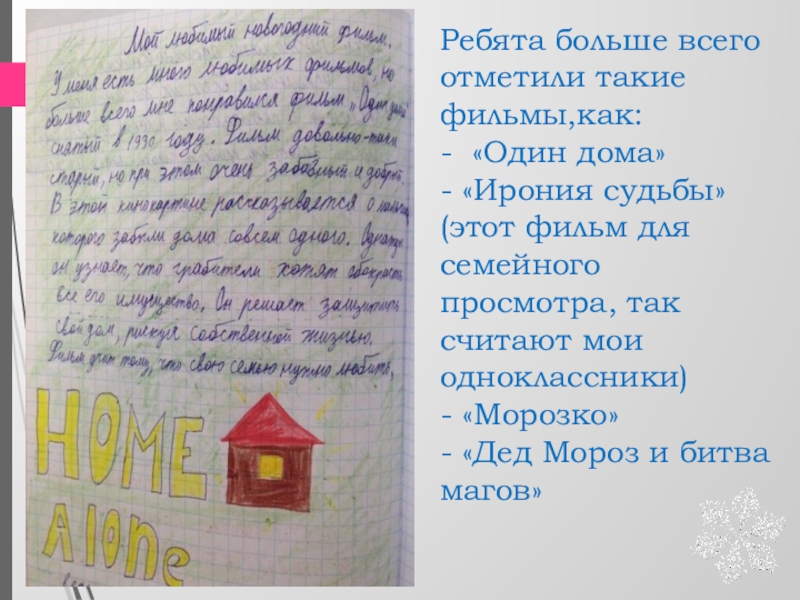 Мой любимый новогодний фильм.
У меня есть много любимых фильмов, но
больше всего мне понравился фильм „Один дома"
снятый в 1990 году. Фильм довольно-таки
старый, но при этом очень забавный и добрый.
В этой кинокартине рассказывается о
которого забыли дома совсем одного. Однажды
он узнает, что грабители хотят обокрасть
все его имущество. Он решает защитить
свой дом, рискуя собственной жизнью.
Фильм учит тому, что свою семью нужно любить.
HOME
Alone
Ребята больше всего
отметили такие
фильмы,как:
- «Один дома»
- «Ирония судьбы»
(этот фильм для
семейного
просмотра, так
считают мои
одноклассники)
- «Морозко»
- «Дед Мороз и битва
магов»